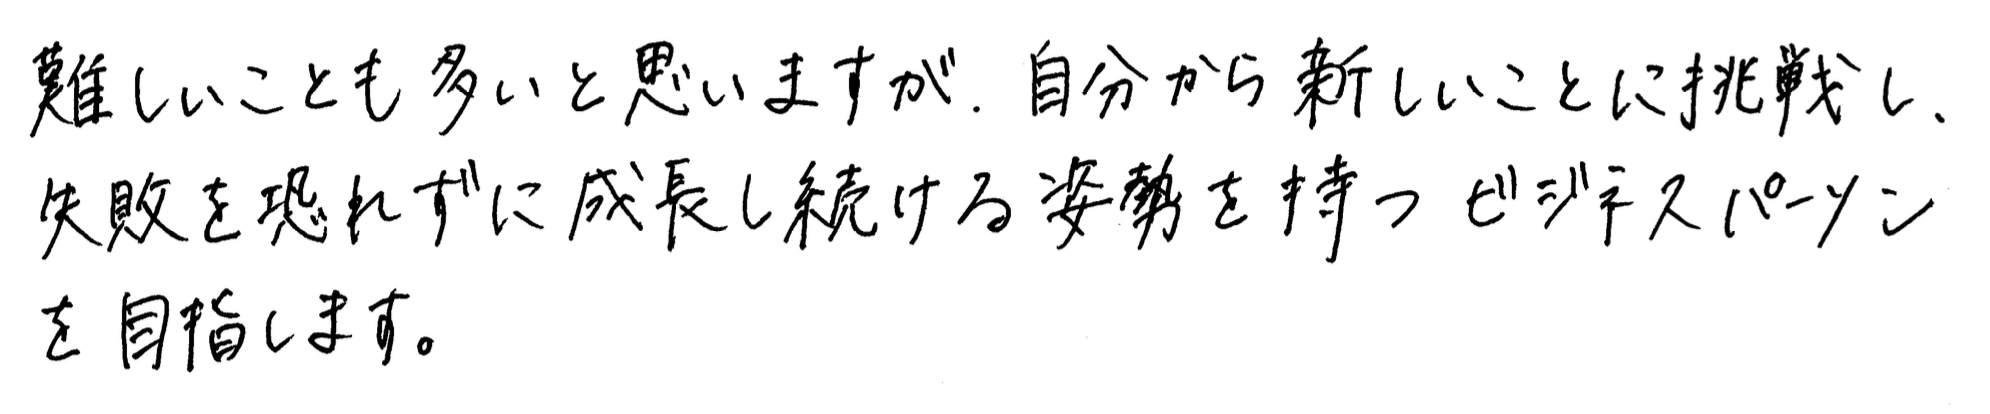 難しいことも多いと思いますが、自分から新しいことに挑戦し、
失敗を恐れずに成長し続ける姿勢を持つビジネスパーソン
を目指します。